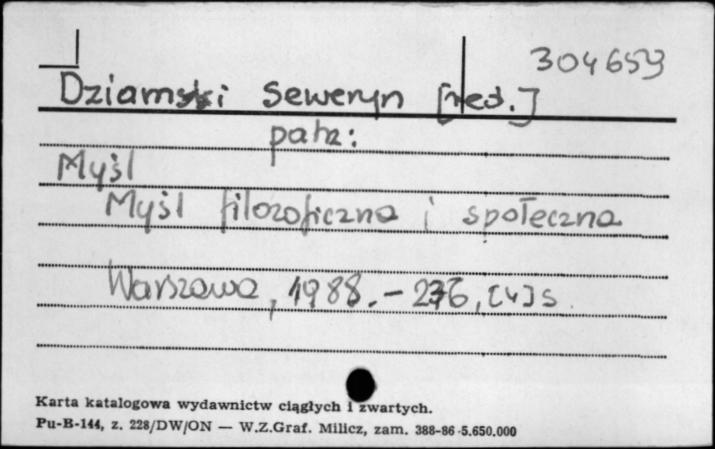 304659
Dziamski Seweryn [red.]
patrz:
Myśl
Myśl filozoficzna i społeczna
Warszawa, 1988. – 276, [4] s.
Karta katalogowa wydawnictw ciągłych i zwartych.
Pu-B-144, z. 228/DW/ON — W.Z.Graf. Milicz, zam. 388-86-5.650.000